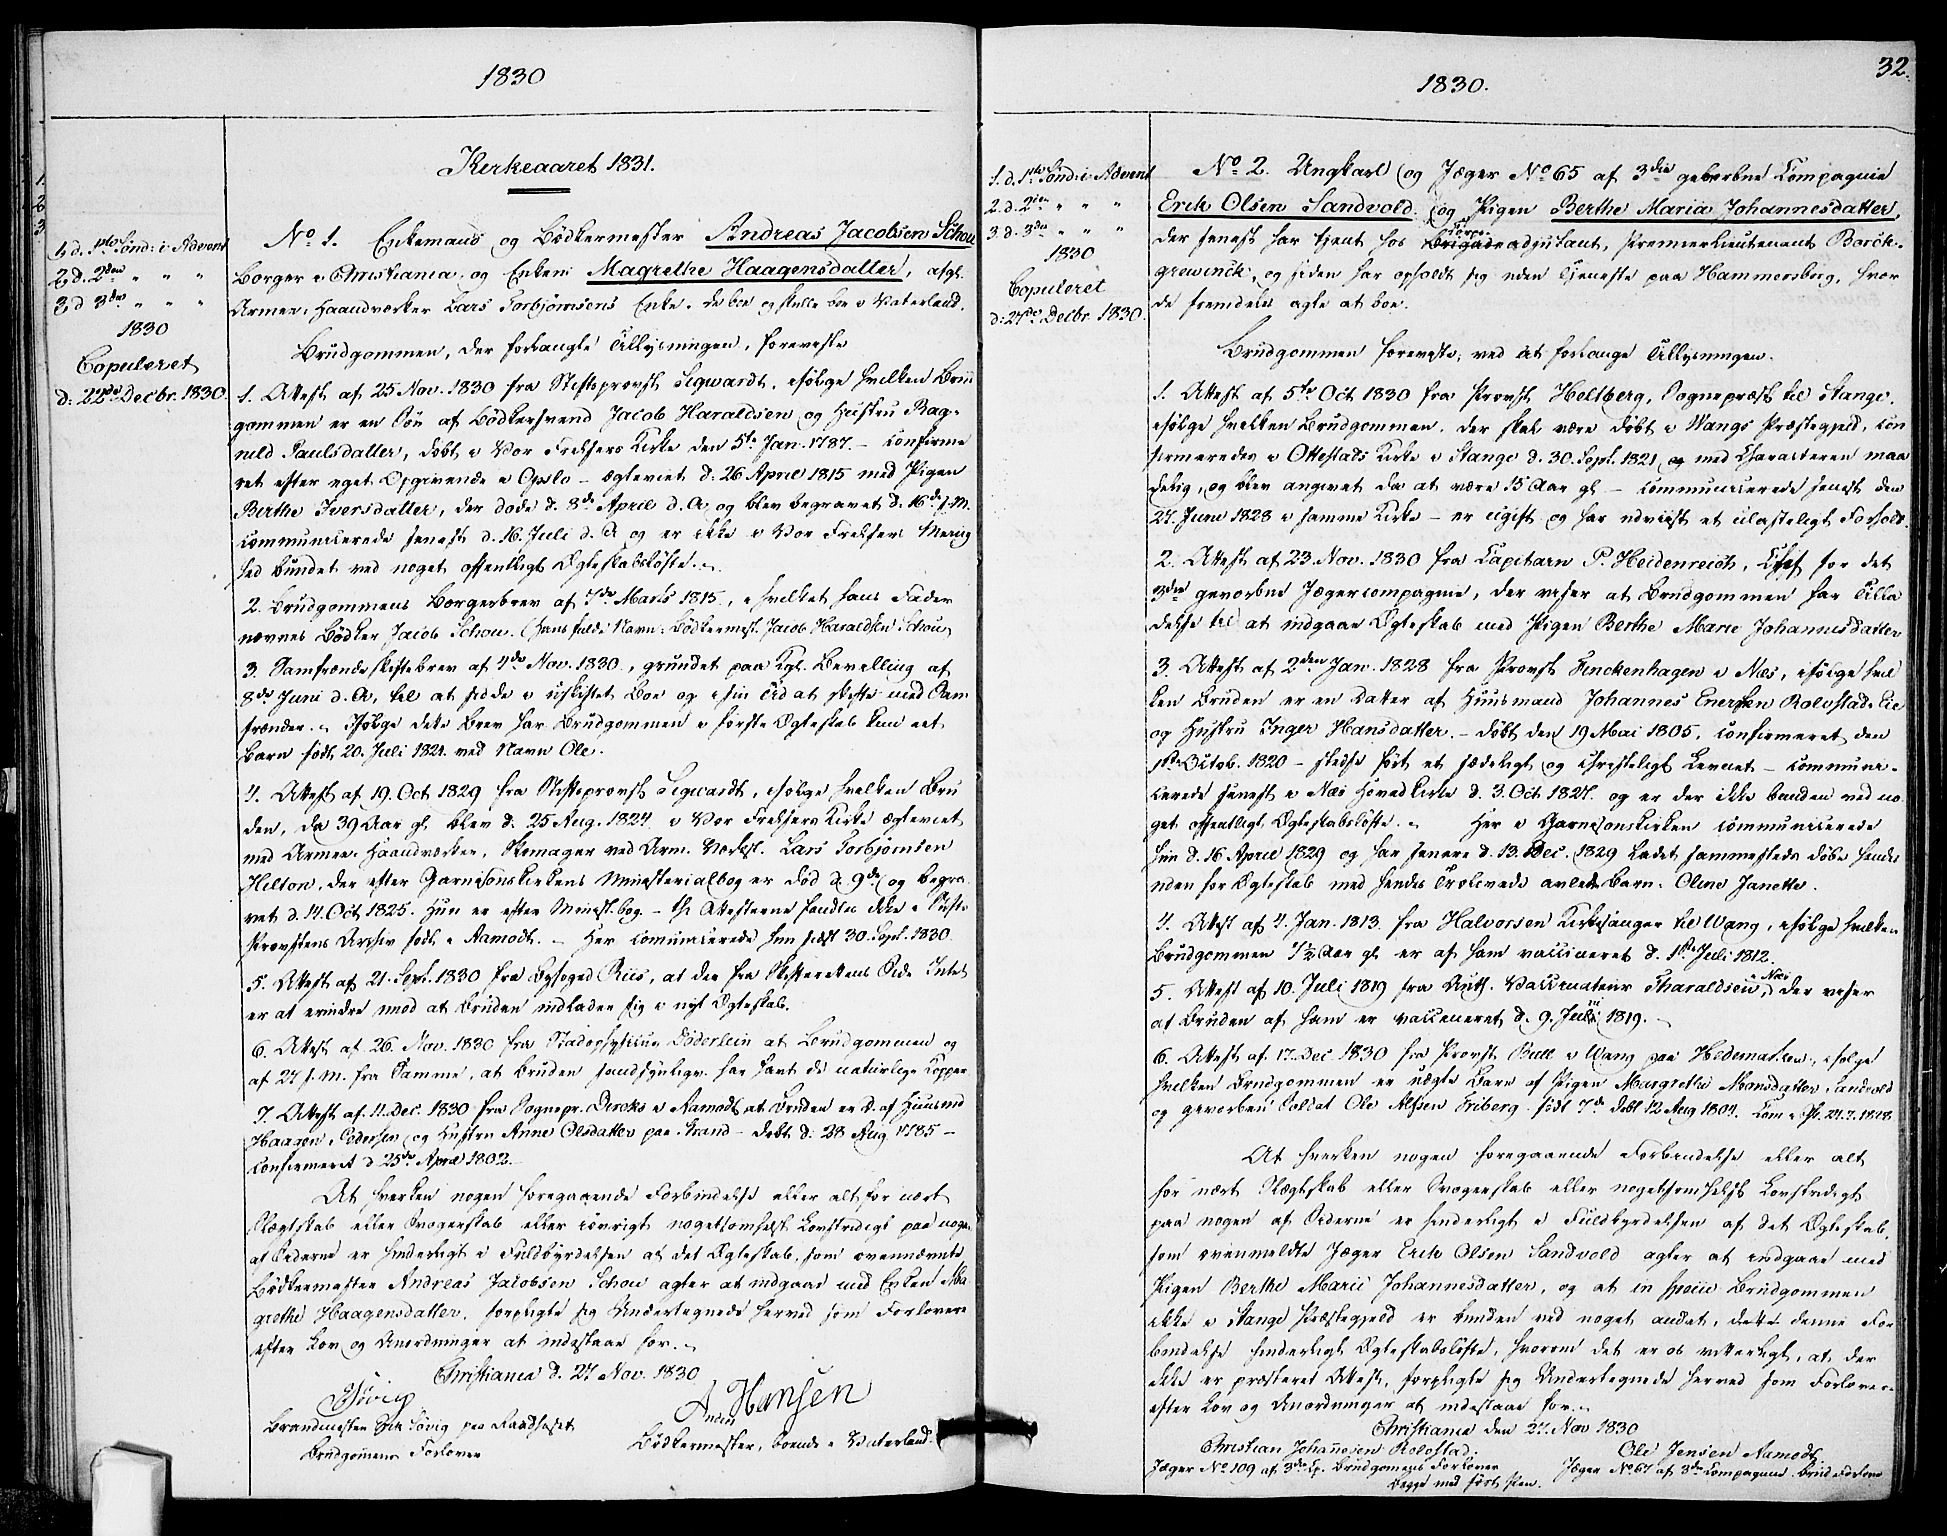 1830
Kirkeaaret 1831.
1 d. 1ste Sönd: i Advent
2 d. 2den " " "
3 d 3die " " "
1830
Copuleret
d: 22de Decbr. 1830.
No. 1. Enkemand og Bödkermester Andreas Jacobsen Schou
Borger i Christiania og Enken Magrethe Haagensdatter, afgl.
Armee-Haandværker Lars Torbjörnsens Enke. De boe og skulle boe i Vaterland.
Brudgommen, der forlangte Tillysningen, foreviste
1. Attest af 25 Nov. 1830 fra Stiftsprovst Sigwardt, ifölge hvilken Brud
gommen er en Sön af Bödkersvend Jacob Haraldsen og Hustru Rag-
nild Paulsdatter, döbt i Vor Frelsers Kirke den 5te Jan. 1787. - confirme
ret efter eget Opgivende i Opslo - ægteviet d. 26 April 1815 med Pigen
Berthe Iversdatter, der döde d. 8de April d. A. og blev begravet d. 16de s. M.
communicerede senest d. 16. Juli d. A og er ikke i Vor Frelsers Menig
hed bundet ved noget offentligt Ægteskabslöfte.
2. Brudgommens Borgerbrev af 7de Marts 1815, i hvilket hans Fader
nævnes Bödker Jacob Schou. (Hans fulde Navn: Bödkermest. Jacob Haraldsen Schou)
3. Samfrændeskiftebrev af 4de Nov. 1830, grundet paa Kgl. Bevilling af
8de Juni d. A, til at sidde i uskiftet Boe og i sin Tid at skifte med Sam
frænder. Ifölge dette Brev har Brudgommen i förste Ægteskab kun eet
Barn född 20. Juli 1821 ved Navn Ole.
4. Attest af 19. Oct 1829 fra Stiftsprovst Sigwardt, ifölge hvilken Bru
den, da 39 Aar gl. blev d. 25 Aug. 1824 i Vor Frelsers Kirke ægteviet
med Armee-Haandværker, Skomager ved Arm. Værkst. Lars Torbjörnsen
Hilton, der efter Garnisonskirkens Ministerialbog er död d. 9de og begra
vet d. 14. Oct 1825. Hun er efter Minist.bog - thi Attesterne fandtes ikke i Stifts
Provstens Archiv - födt i Aamodt. - Her communicerede hun sidst 30. Sept. 1830
5. Attest af 21. Sept. 1830 fra Byfoged Riis, at der fra Skifterettens Side Intet
er at erindre mod at Bruden indlader sig i nyt Ægteskab.
6. Attest af 26. Nov. 1830 fra Stadsphysicus Döderlein at Brudgommen og
af 27 s. M. fra Samme, at Bruden sandsynligv. har havt de naturlige Kopper
7. Attest af 11. Dec. 1830 fra Sognepr. Dircks i Aamodt at Bruden er D. af Huusmd
Haagen Pedersen og Hustru Anne Olsdatter paa Strand - döbt d: 28 Aug 1785 -
confirmeret d 25de April 1802.
At hverken nogen foregaaende Forbindelse eller alt for nært
Slægtskab eller Svogerskab eller iövrigt nogetsomhelst Lovstridigt paa nogen
af Siderne er hinderligt i Fuldbyrdelsen af det Ægteskab, som ovennævnte
Bödkermester Andreas Jacobsen Schou agter at indgaae med Enken Ma
grethe Haagensdatter, forpligte sig Undertegnede herved som Forlovere
efter Lov og Anordninger at indestaae for.
Christiania d. 27 Nov. 1830
Brandmester Erik Hövig paa Raadhuset
Brudgommens Forlover
Anders Hansen
Bödkermester, boende i Vaterland.
1830.
32.
1. d. 1ste Sönd: i Advent
2. d. 2den " " "
3 d. 3die " " "
1830
Copuleret
d: 27de Decbr. 1830.
No. 2. Ungkarl og Jæger No 65 af 3die gevorbne Compagnie
Erik Olsen Sandvold og Pigen Berthe Maria Johannesdatter,
der senest har tjent hos Brigadeadjutant, Premierlieutenant Borch-
grewinck, og siden har opholdt sig uden Tjeneste paa Hammersborg, hvor
de fremdeles agte at boe.
Brudgommen foreviste, ved at forlange Tillysningen.
1. Attest af 5te Oct 1830 fra Provst Heltberg, Sognepræst til Stange,
ifölge hvilken Brudgommen, der skal være döbt i Wangs Præstegjeld, con
firmeredes i Ottestads Kirke i Stange d. 30. Sept. 1821 og med Characteren maa
delig, og blev angivet da at være 15 Aar gl - communicerede senest den
27. Juni 1828 i samme Kirke - er ugift og har udviist et ulasteligt Forhold.
2. Attest af 23 Nov. 1830 fra Capitain P. Heidenreich, Chef for det
3die gevorbne Jægercompagnie, der viser at Brudgommen har Tilla
delse til at indgaae Ægteskab med Pigen Berthe Marie Johannesdatter
3. Attest af 2den Jan. 1828 fra Provst Finckenhagen i Næs, ifölge hvil
ken Bruden er en Datter af Huusmand Johannes Enersen Rolvstad-Eie
og Hustru Inger Hansdatter. - döbt den 19 Mai 1805, confirmeret den
1ste Octob. 1820 - stedse fört et sædeligt og christeligt Levnet - communi-
cerede senest i Næs Hovedkirke d. 3. Oct 1827. og er der ikke bunden ved no
get offentligt Ægteskabslöfte. - Her i Garnisonskirken communicerede
hun d. 16 April 1829 og har senere d. 13. Dec. 1829 ladet sammesteds döbe hendes
uden for Ægteskab med hendes Trolovede avlede Barn: Oline Janette.
4. Attest af 4. Jan. 1813 fra Halvorsen Kirkesanger til Wang, ifölge hvilken
Brudgommen 7½ Aar gl. er af ham vaccineret d. 1ste Juli 1812.
5. Attest af 10. Juli 1819 fra Auth. Vaccinateur Tharaldsen i Næs, der viser
at Bruden af ham er vaccineret d. 9. Juli 1819.
6. Attest af 17. Dec 1830 fra Provst Bull i Wang paa Hedemarken, ifölge
hvilken Brudgommen er uægte Barn af Pigen Margrethe Monsdatter Sandvold
og gevorben Soldat Ole Friberg födt 7de döbt 12 Aug 1804.
At hverken nogen foregaaende Forbindelse eller alt
for nært Slægtskab eller Svogerskab eller nogetsomhelst Lovstridigt
paa nogen af Siderne er hinderligt i Fuldbyrdelsen af det Ægteskab,
som ovenmeldte Jæger Erik Olsen Sandvold agter at indgaae med
Pigen Berthe Marie Johannesdatter, og at in specie Brudgommen
ikke i Stange Præstegjeld er bunden ved noget andet, dette denne For
bindelse hinderligt Ægteskabslöfte, hvorom det er os vitterligt, at der
ikke er præsteret Attest, forpligte sig Undertegnede herved som Forlovere
efter Lov og Anordninger at indestaae for.
Christiania den 27. Nov 1830
Christian Johannesen Rolvstad.
Jæger No 109 af 3die Cp. Brudgommens Forlover
Ole Jensen Aamodt
Jæger No 67 af 3die Compagnie Brudens Forlover
Begge med fört Pen.